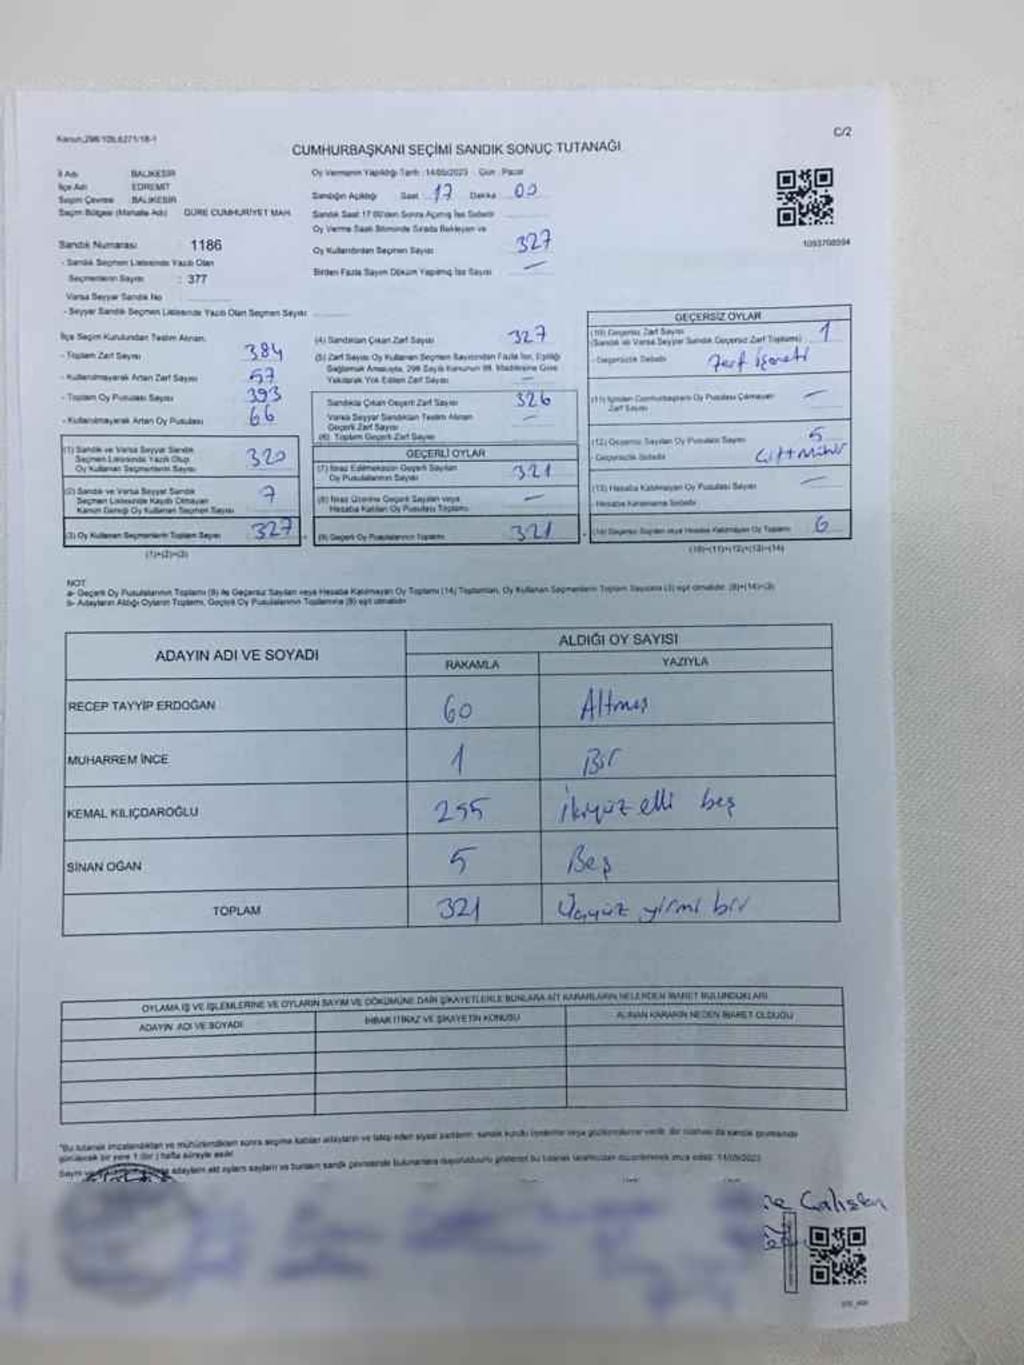 Kanun:298/105,6271/18-1
C/2
CUMHURBAŞKANI SEÇİMİ SANDIK SONUÇ TUTANAĞI
İl Adı BALIKESİR
İlçe Adı EDREMİT
Seçim Çevresi BALIKESİR
Seçim Bölgesi (Mahalle Adı) GÜRE CUMHURİYET MAH.
Sandık Numarası 1186
- Sandık Seçmen Listesinde Yazılı Olan
Seçmenlerin Sayısı : 377
Varsa Seyyar Sandık No
- Seyyar Sandık Seçmen Listesinde Yazılı Olan Seçmen Sayısı
Oy Vermenin Yapıldığı Tarih : 14/05/2023 Gün : Pazar
Sandığın Açıldığı Saat 17 Dakika 00
Sandık Saat 17:00'den Sonra Açılmış İse Sebebi
Oy Verme Saati Bitiminde Sırada Bekleyen ve
Oy Kullandırılan Seçmen Sayısı 327
Birden Fazla Sayım Döküm Yapılmış İse Sayısı —
1093708594
İlçe Seçim Kurulundan Teslim Alınan:
- Toplam Zarf Sayısı 384
- Kullanılmayarak Artan Zarf Sayısı 57
- Toplam Oy Pusulası Sayısı 393
- Kullanılmayarak Artan Oy Pusulası 66
(1) Sandık ve Varsa Seyyar Sandık
Seçmen Listesinde Yazılı Olup
Oy Kullanan Seçmenlerin Sayısı 320
(2) Sandık ve Varsa Seyyar Sandık
Seçmen Listesinde Kayıtlı Olmayan
Kanun Gereği Oy Kullanan Seçmen Sayısı 7
(3) Oy Kullanan Seçmenlerin Toplam Sayısı 327
(1)+(2)=(3)
(4) Sandıktan Çıkan Zarf Sayısı 327
(5) Zarf Sayısı Oy Kullanan Seçmen Sayısından Fazla İse, Eşitliği
Sağlamak Amacıyla, 298 Sayılı Kanunun 98. Maddesine Göre
Yakılarak Yok Edilen Zarf Sayısı —
Sandıkta Çıkan Geçerli Zarf Sayısı 326
Varsa Seyyar Sandıktan Teslim Alınan
Geçerli Zarf Sayısı —
(6) Toplam Geçerli Zarf Sayısı
GEÇERLİ OYLAR
(7) İtiraz Edilmeksizin Geçerli Sayılan
Oy Pusulalarının Sayısı 321
(8) İtiraz Üzerine Geçerli Sayılan veya
Hesaba Katılan Oy Pusulası Toplamı —
(9) Geçerli Oy Pusulalarının Toplamı 321
GEÇERSİZ OYLAR
(10) Geçersiz Zarf Sayısı
(Sandık ve Varsa Seyyar Sandık Geçersiz Zarf Toplamı) 1
- Geçersizlik Sebebi Zarf İşareti
(11) İçinden Cumhurbaşkanı Oy Pusulası Çıkmayan
Zarf Sayısı —
(12) Geçersiz Sayılan Oy Pusulası Sayısı 5
- Geçersizlik Sebebi Çift Mühür
(13) Hesaba Katılmayan Oy Pusulası Sayısı —
- Hesaba Katılmama Sebebi
(14) Geçersiz Sayılan veya Hesaba Katılmayan Oy Toplamı 6
(10)+(11)+(12)+(13)=(14)
NOT:
a- Geçerli Oy Pusulalarının Toplamı (9) ile Geçersiz Sayılan veya Hesaba Katılmayan Oy Toplamı (14) Toplamları, Oy Kullanan Seçmenlerin Toplam Sayısına (3) eşit olmalıdır. (9)+(14)=(3)
b- Adayların Aldığı Oyların Toplamı, Geçerli Oy Pusulalarının Toplamına (9) eşit olmalıdır.
ADAYIN ADI VE SOYADI
ALDIĞI OY SAYISI
RAKAMLA YAZIYLA
RECEP TAYYİP ERDOĞAN 60 Altmış
MUHARREM İNCE 1 Bir
KEMAL KILIÇDAROĞLU 255 İkiyüz elli beş
SİNAN OĞAN 5 Beş
TOPLAM 321 Üçyüz yirmi bir
OYLAMA İŞ VE İŞLEMLERİNE VE OYLARIN SAYIM VE DÖKÜMÜNE DAİR ŞİKAYETLERLE BUNLARA AİT KARARLARIN NELERDEN İBARET BULUNDUKLARI
ADAYIN ADI VE SOYADI İHBAR İTİRAZ VE ŞİKAYETİN KONUSU ALINAN KARARIN NEDEN İBARET OLDUĞU
"Bu tutanak imzalandıktan ve mühürlendikten sonra seçime katılan adayların ve talep eden siyasi partilerin sandık kurulu üyelerine veya gözlemcilerine verilir. Bir nüshası da sandık çevresinde
görülecek bir yere 1 (bir) hafta süreyle asılır.
14/05/2023
Çalışkan